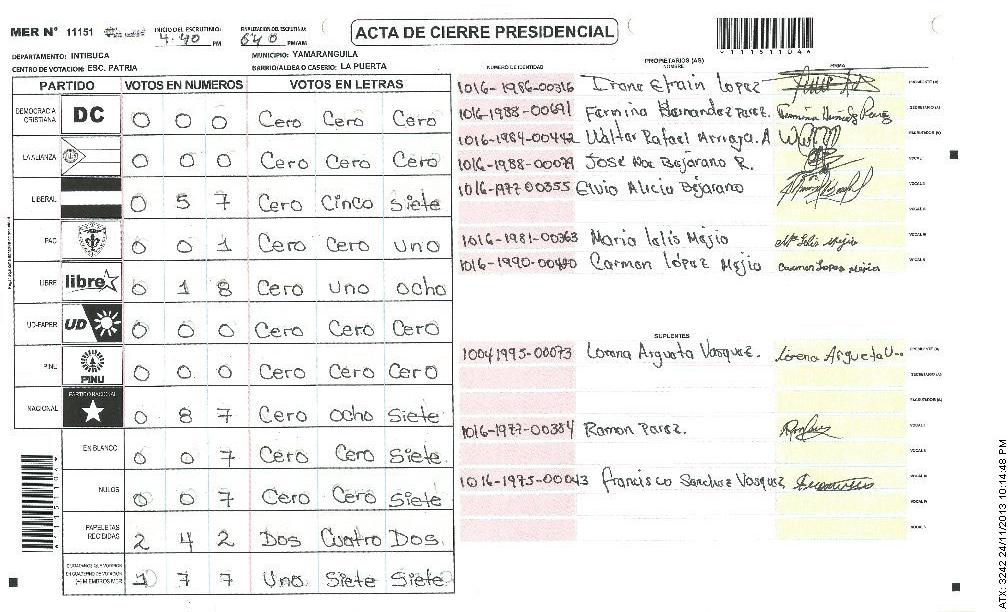 MER N° 11151 INICIO DEL ESCRUTINIO: 4:40 PM FINALIZACION DEL ESCRUTINIO: 640 PM/AM ACTA DE CIERRE PRESIDENCIAL
DEPARTAMENTO: INTIBUCA MUNICIPIO: YAMARANGUILA
CENTRO DE VOTACION: ESC. PATRIA BARRIO/ALDEA O CASERIO: LA PUERTA
PARTIDO VOTOS EN NUMEROS VOTOS EN LETRAS
DEMOCRACIA CRISTIANA DC 0 0 0 Cero Cero Cero
LA ALIANZA 0 0 0 Cero Cero Cero
LIBERAL 0 5 7 Cero Cinco Siete
PAC 0 0 1 Cero Cero uno
LIBRE libre 0 1 8 Cero uno ocho
UD-FAPER UD 0 0 0 Cero Cero Cero
PINU PINU 0 0 0 Cero Cero Cero
NACIONAL PARTIDO NACIONAL 0 8 7 Cero ocho Siete
EN BLANCO 0 0 7 Cero Cero Siete
NULOS 0 0 7 Cero Cero Siete
PAPELETAS RECIBIDAS 2 4 2 Dos Cuatro Dos.
CIUDADANOS QUE VOTARON 1 7 7 Uno Siete Siete
1 1 1 5 1 1 0 4 4
NUMERO DE IDENTIDAD PROPIETARIOS (AS) NOMBRE FIRMA
1016-1986-00316 Efrain Lopez PRESIDENTE (A)
1016-1988-00691 Fermina Hernandez Perez. SECRETARIO (A)
1016-1984-00442 Walter Rafael Arriaga. A ESCRUTADOR (A)
1016-1988-00079 José Noe Bejarano R. VOCAL I
1016-1977 00355 Elvio Alicio Bejarano VOCAL II
1016-1981-00363 Maria Lolis Mejio Mª Lolis Mejio VOCAL IV
1016-1990-00420 Carmen López Mejio Carmen Lopez Mejio VOCAL V
SUPLENTES
1004 1995-00073 Lorena Argueta Vasquez. Lorena Argueta V PRESIDENTE (A)
SECRETARIO (A)
ESCRUTADOR (A)
1016-1977-00384 Ramon Perez. VOCAL I
VOCAL II
1016-1975-00043 francisco Sanchez Vasquez VOCAL III
VOCAL IV
VOCAL V
ATX: 3242 24/11/2013 10:14:48 PM